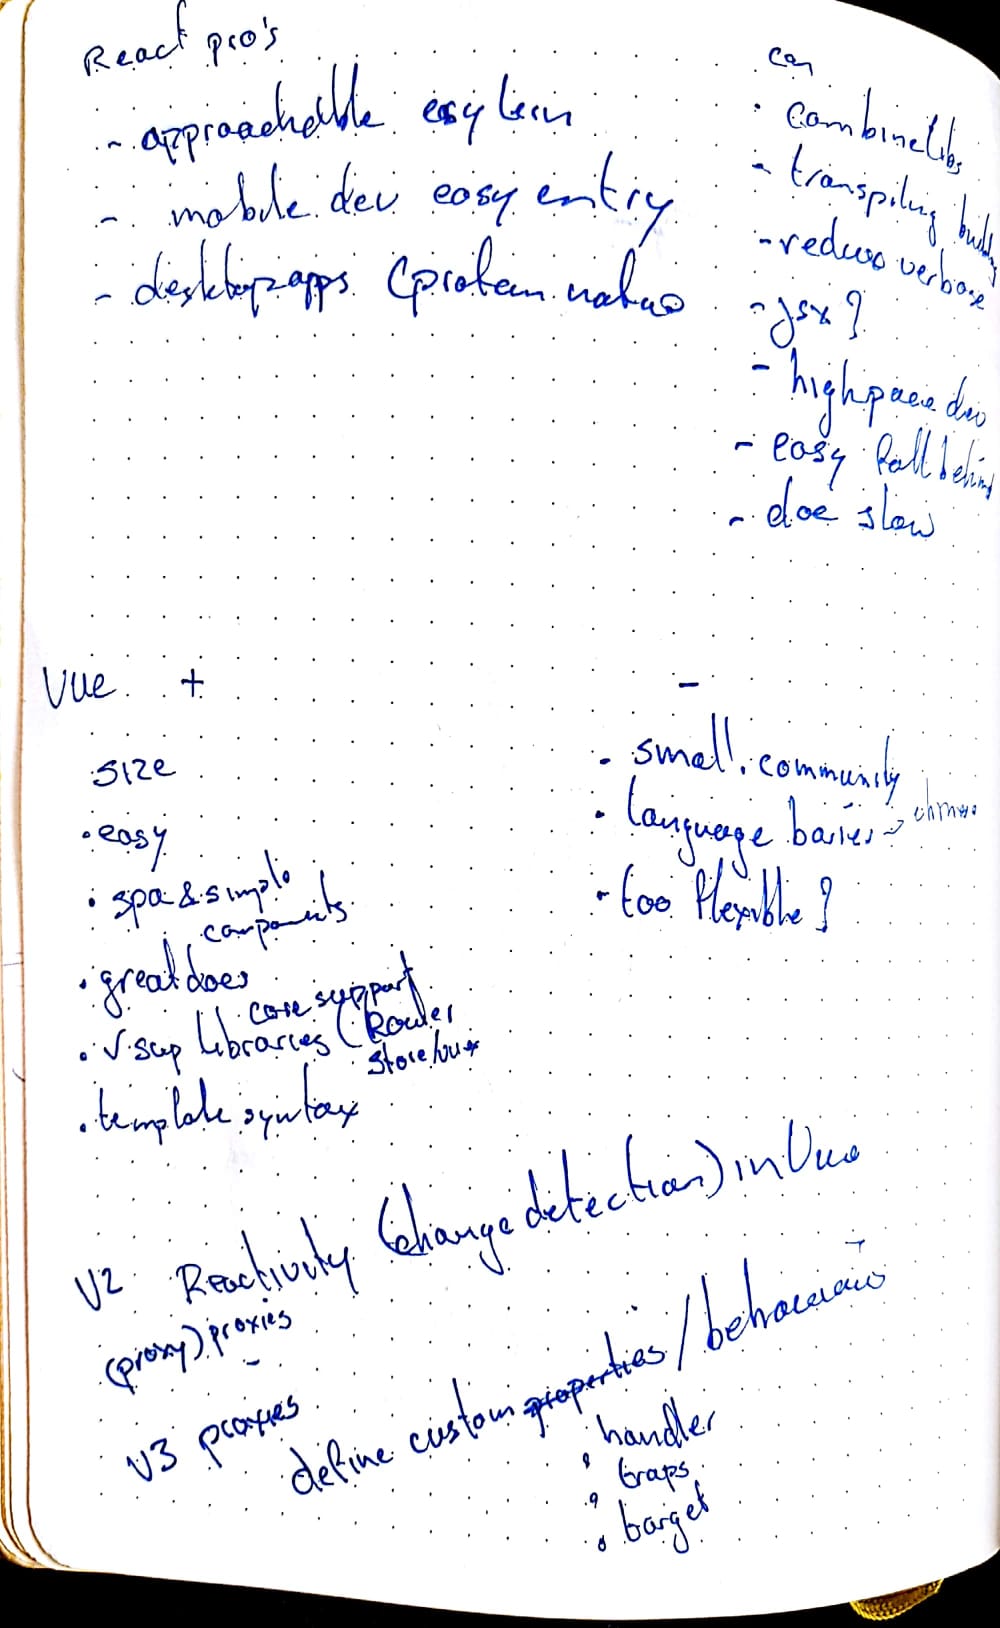 React pro's
- approachable easy learn
- mobile dev easy entry
- desktop apps (proton native
con
· combine libs
- transpiling building
- redux verbose
- jsx ?
- high pace dev
- easy fall behind
- doc slow
Vue +
size
· easy
· spa & simple
components
· great docs
core support
· libraries (Router
Store/vuex
· template syntax
-
· small community
· language barier →
· too flexible ?
V2 Reactivity (change detection) in Vue
(proxy) proxies
V3 proxies
define custom properties / behaviour
· handler
· traps
· target